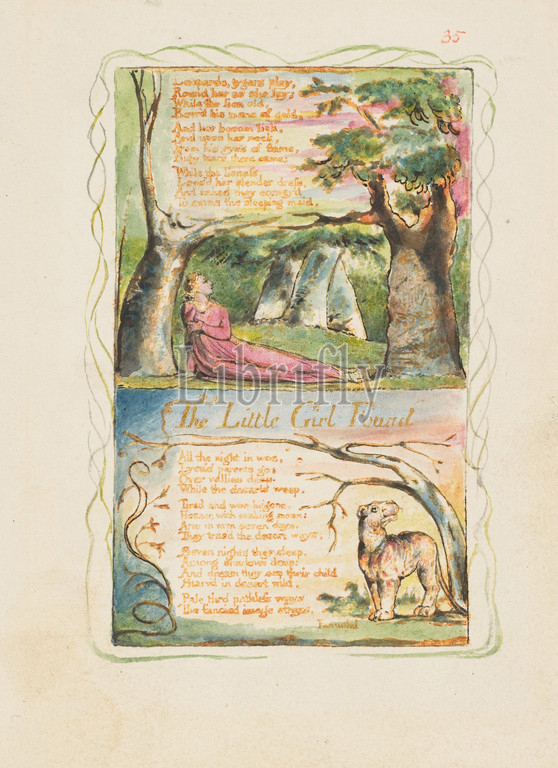 35
Leopards, tygers play,
Round her as she lay;
While the lion old,
Bow'd his mane of gold,
And her bosom lick,
And upon her neck,
From his eyes of flame,
Ruby tears there came;
While the lioness,
Loos'd her slender dress,
And naked they convey'd
To caves the sleeping maid.
Librifly
The Little Girl Found
All the night in woe,
Lyca's parents go:
Over vallies deep,
While the desarts weep.
Tired and woe-begone,
Hoarse with making moan:
Arm in arm seven days,
They trac'd the desart ways.
Seven nights they sleep,
Among shadows deep:
And dream they see their child
Starv'd in desart wild.
Pale thro pathless ways
The fancied image strays,
Famish'd